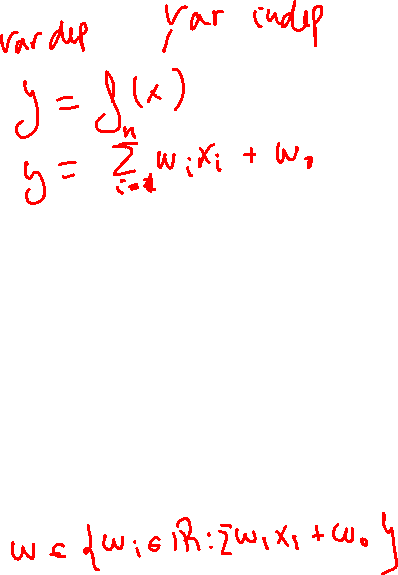 var dep var indep
y = f(x)
y = n∑i=1 wixi + w0
w ∈ {wi ∈ ℝ : ∑wixi + w0}